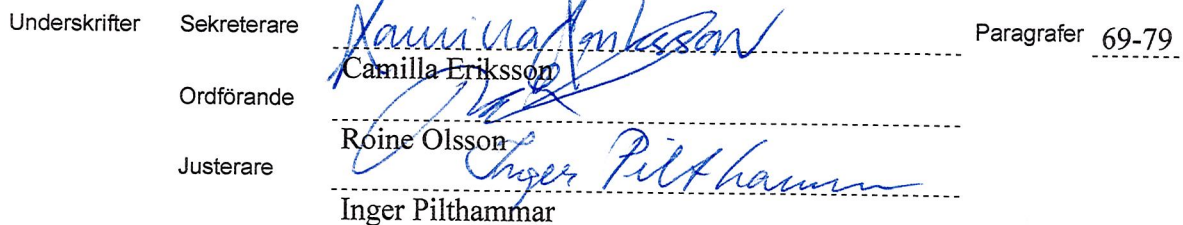 Underskrifter Sekreterare Paragrafer 69-79
Camilla Eriksson
Ordförande
Roine Olsson
Justerare Inger Pilthammar
Inger Pilthammar